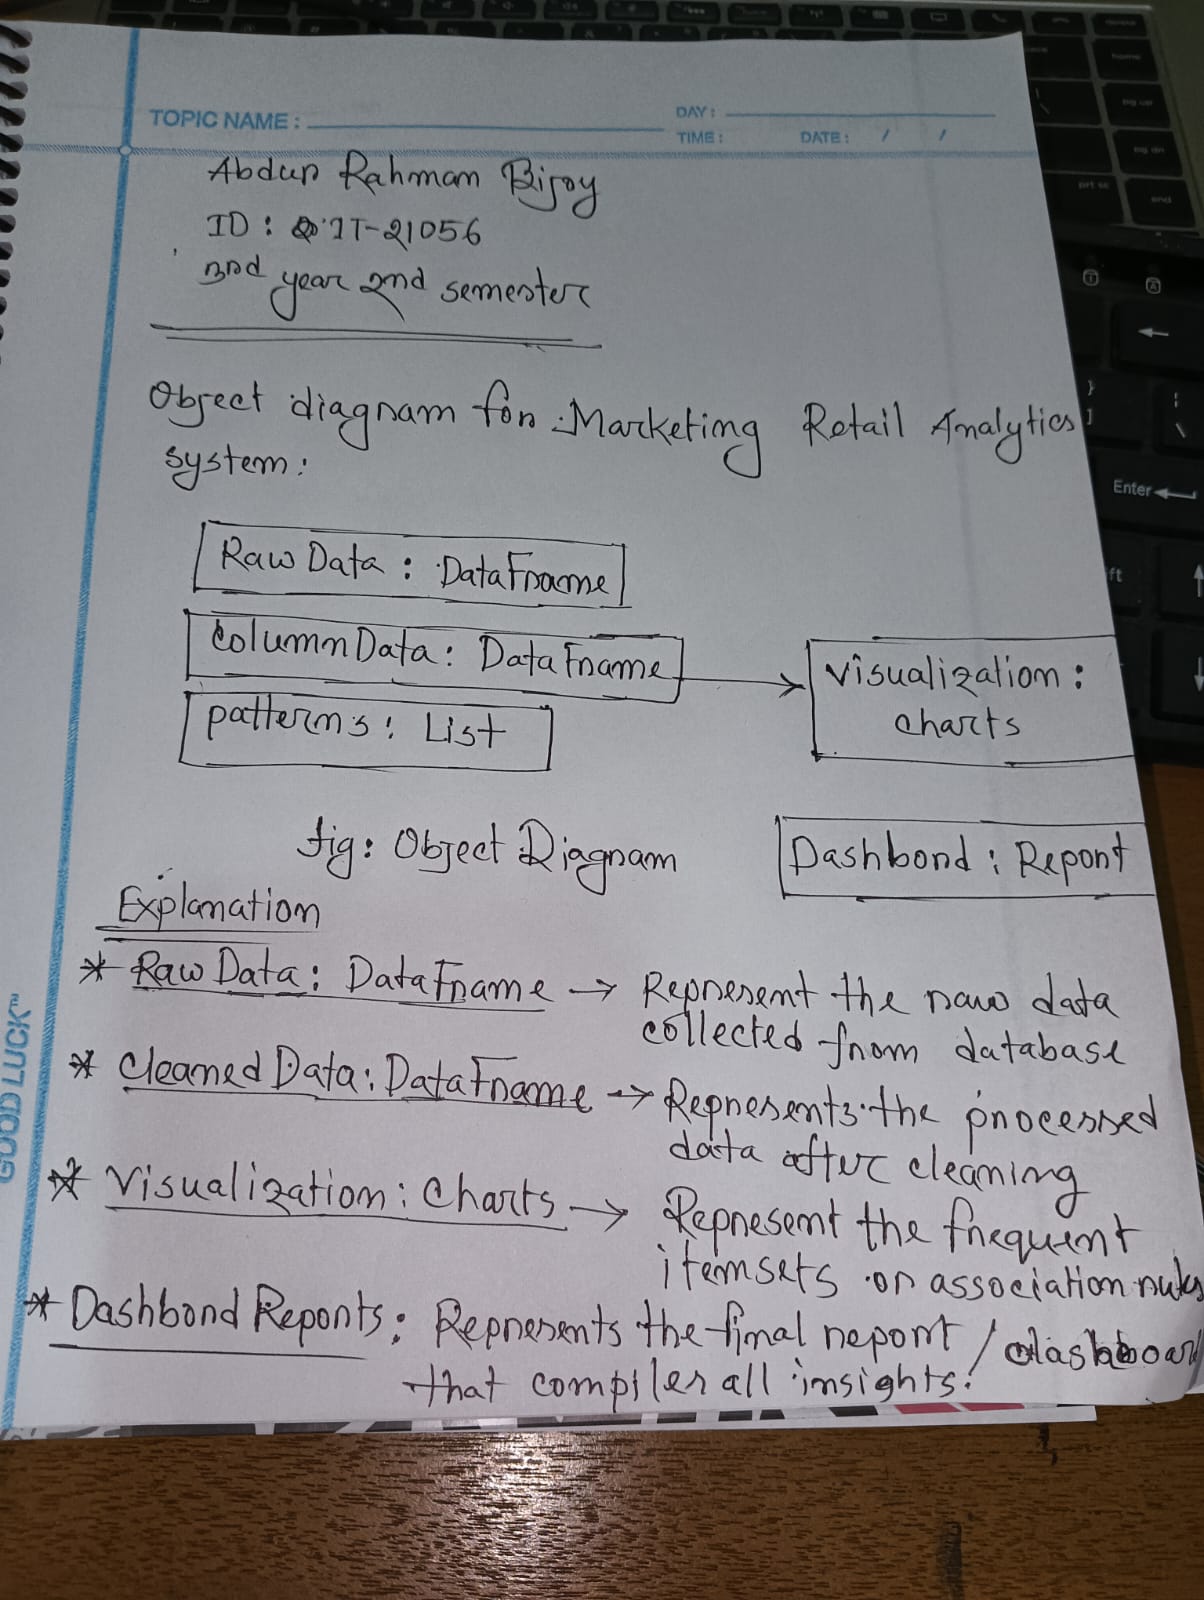 TOPIC NAME :
DAY :
TIME :
DATE : / /
Abdur Rahman Bijoy
ID : IT-21056
3rd year 2nd semester
Object diagram for Marketing Retail Analytics
system:
Raw Data : DataFrame
ColumnData : DataFrame
patterns : List
Visualization :
charts
fig: Object Diagram
Dashbord : Report
Explanation
* Raw Data : DataFrame → Represent the raw data
collected from database
* Cleaned Data : DataFrame → Represents the processed
data after cleaning
* Visualization : Charts → Represent the frequent
itemsets or association rules
* Dashbord Reports : Represents the final report / dashboar
that compiler all insights.
GOOD LUCK™
Enter
home
pg up
pg dn
prt sc
end